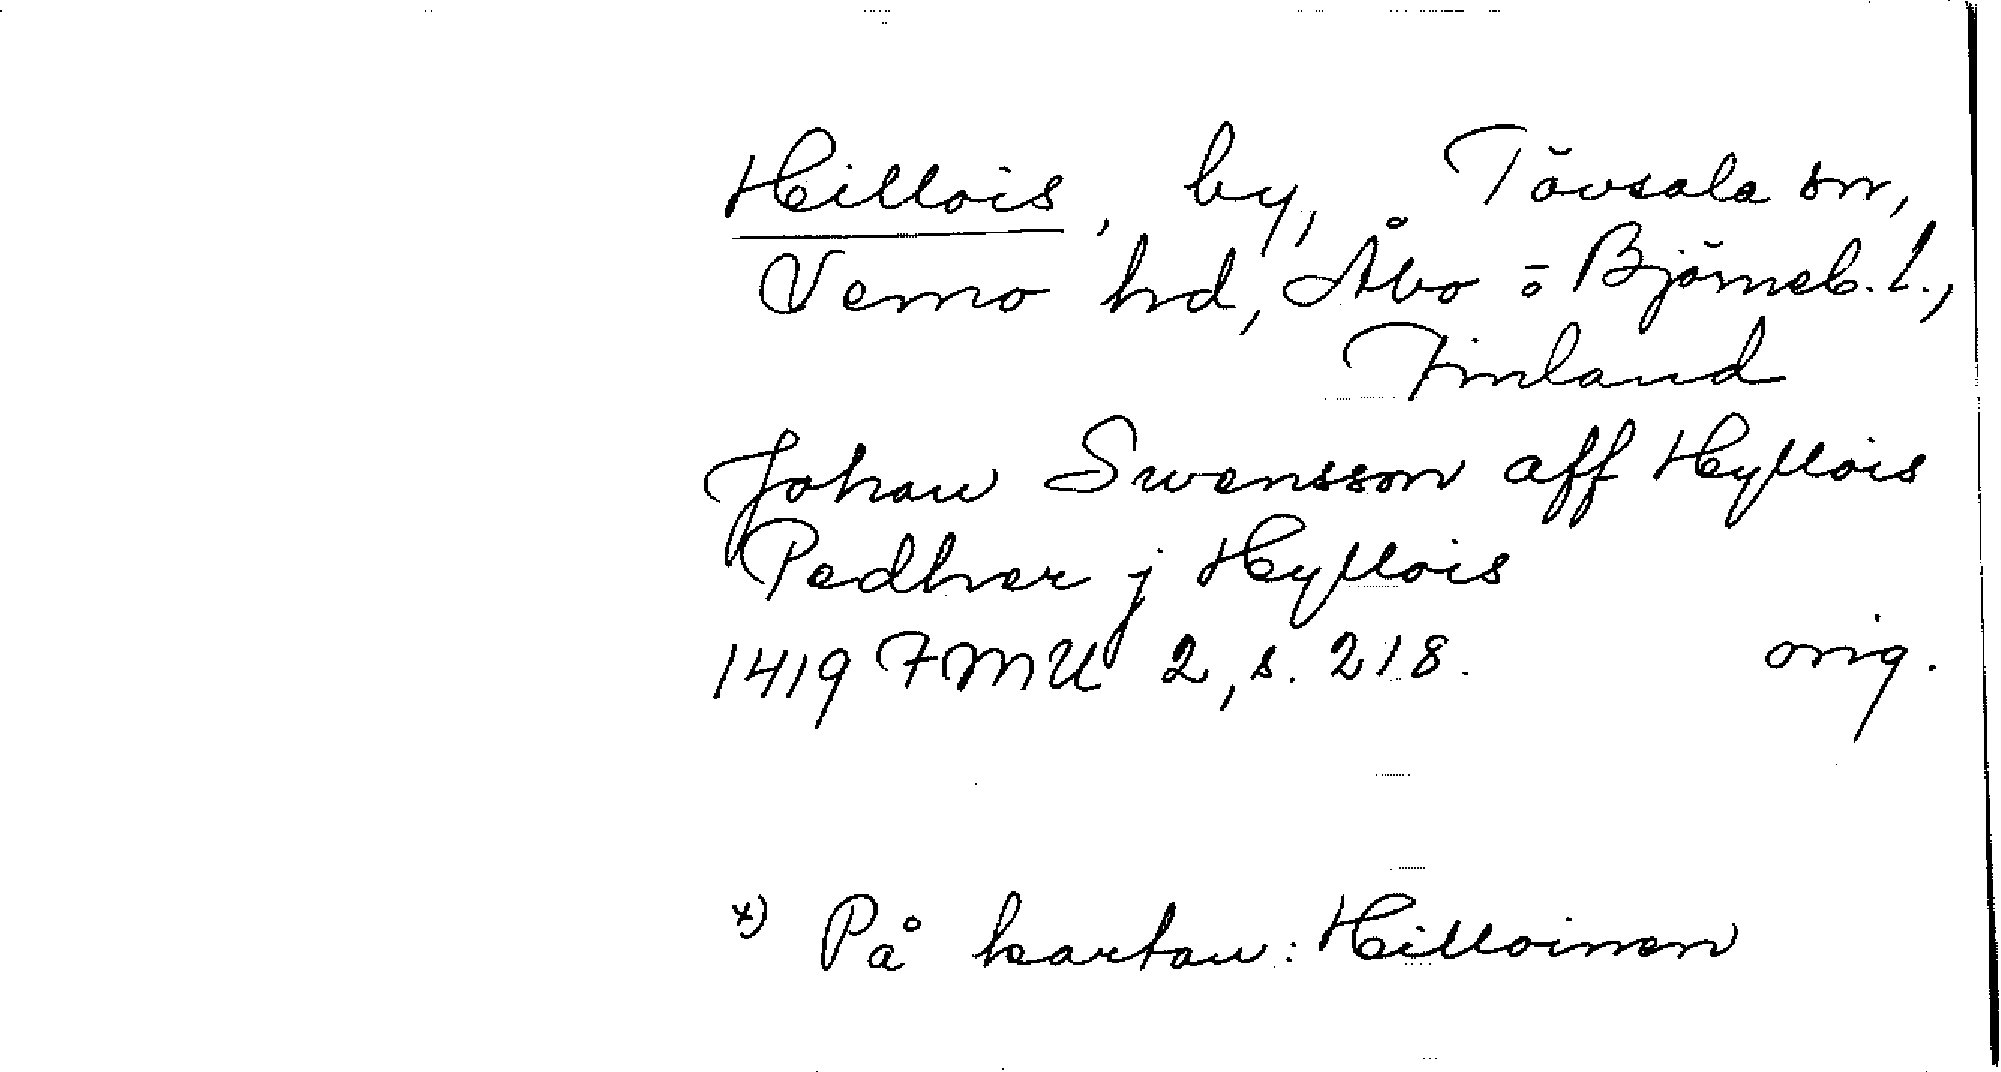 Hillois, by, Tövsala sn,
Vemo hd, Åbo o Björneb. l.,
Finland
Johan Swensson aff Hyllois
Pedher j Hyllois
1419 FMU 2, s. 218. orig.
x) På kartan: Hilloinen